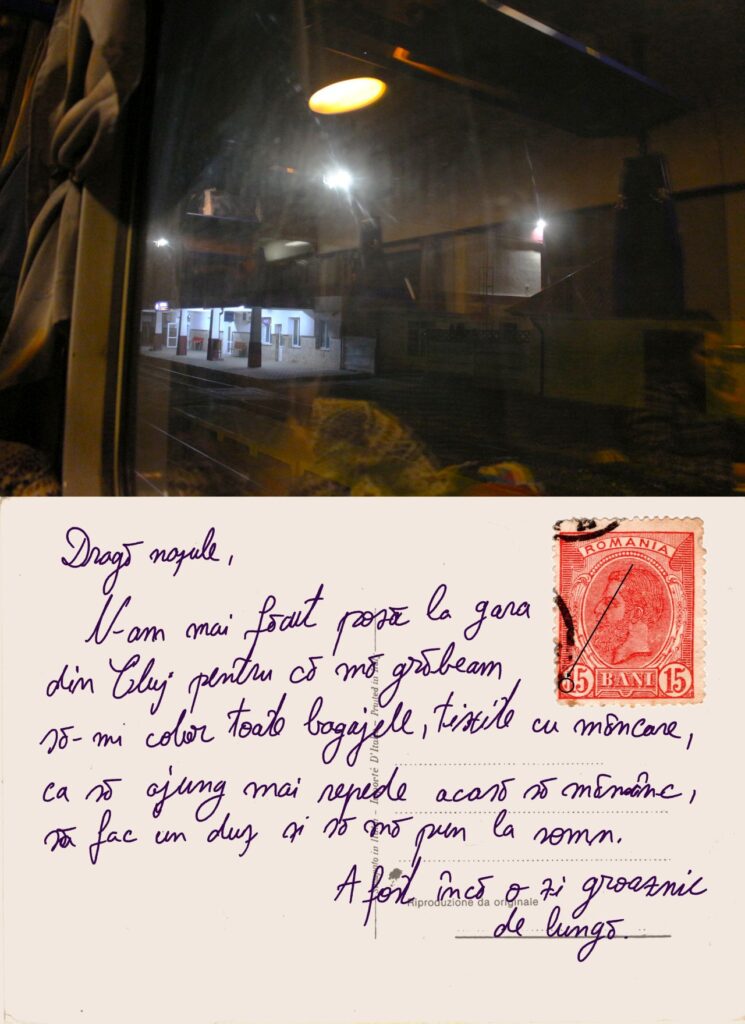 Dragă nașule,
N-am mai făcut poză la gara
din Cluj pentru că mă grăbeam
să-mi cobor toate bagajele, tixite cu mâncare,
ca să ajung mai repede acasă să mănânc,
să fac un duș și să mă pun la somn.
A fost încă o zi groaznic
de lungă.
ROMANIA
15 BANI 15
Importé D'Italie – Printed in
Riproduzione da originale